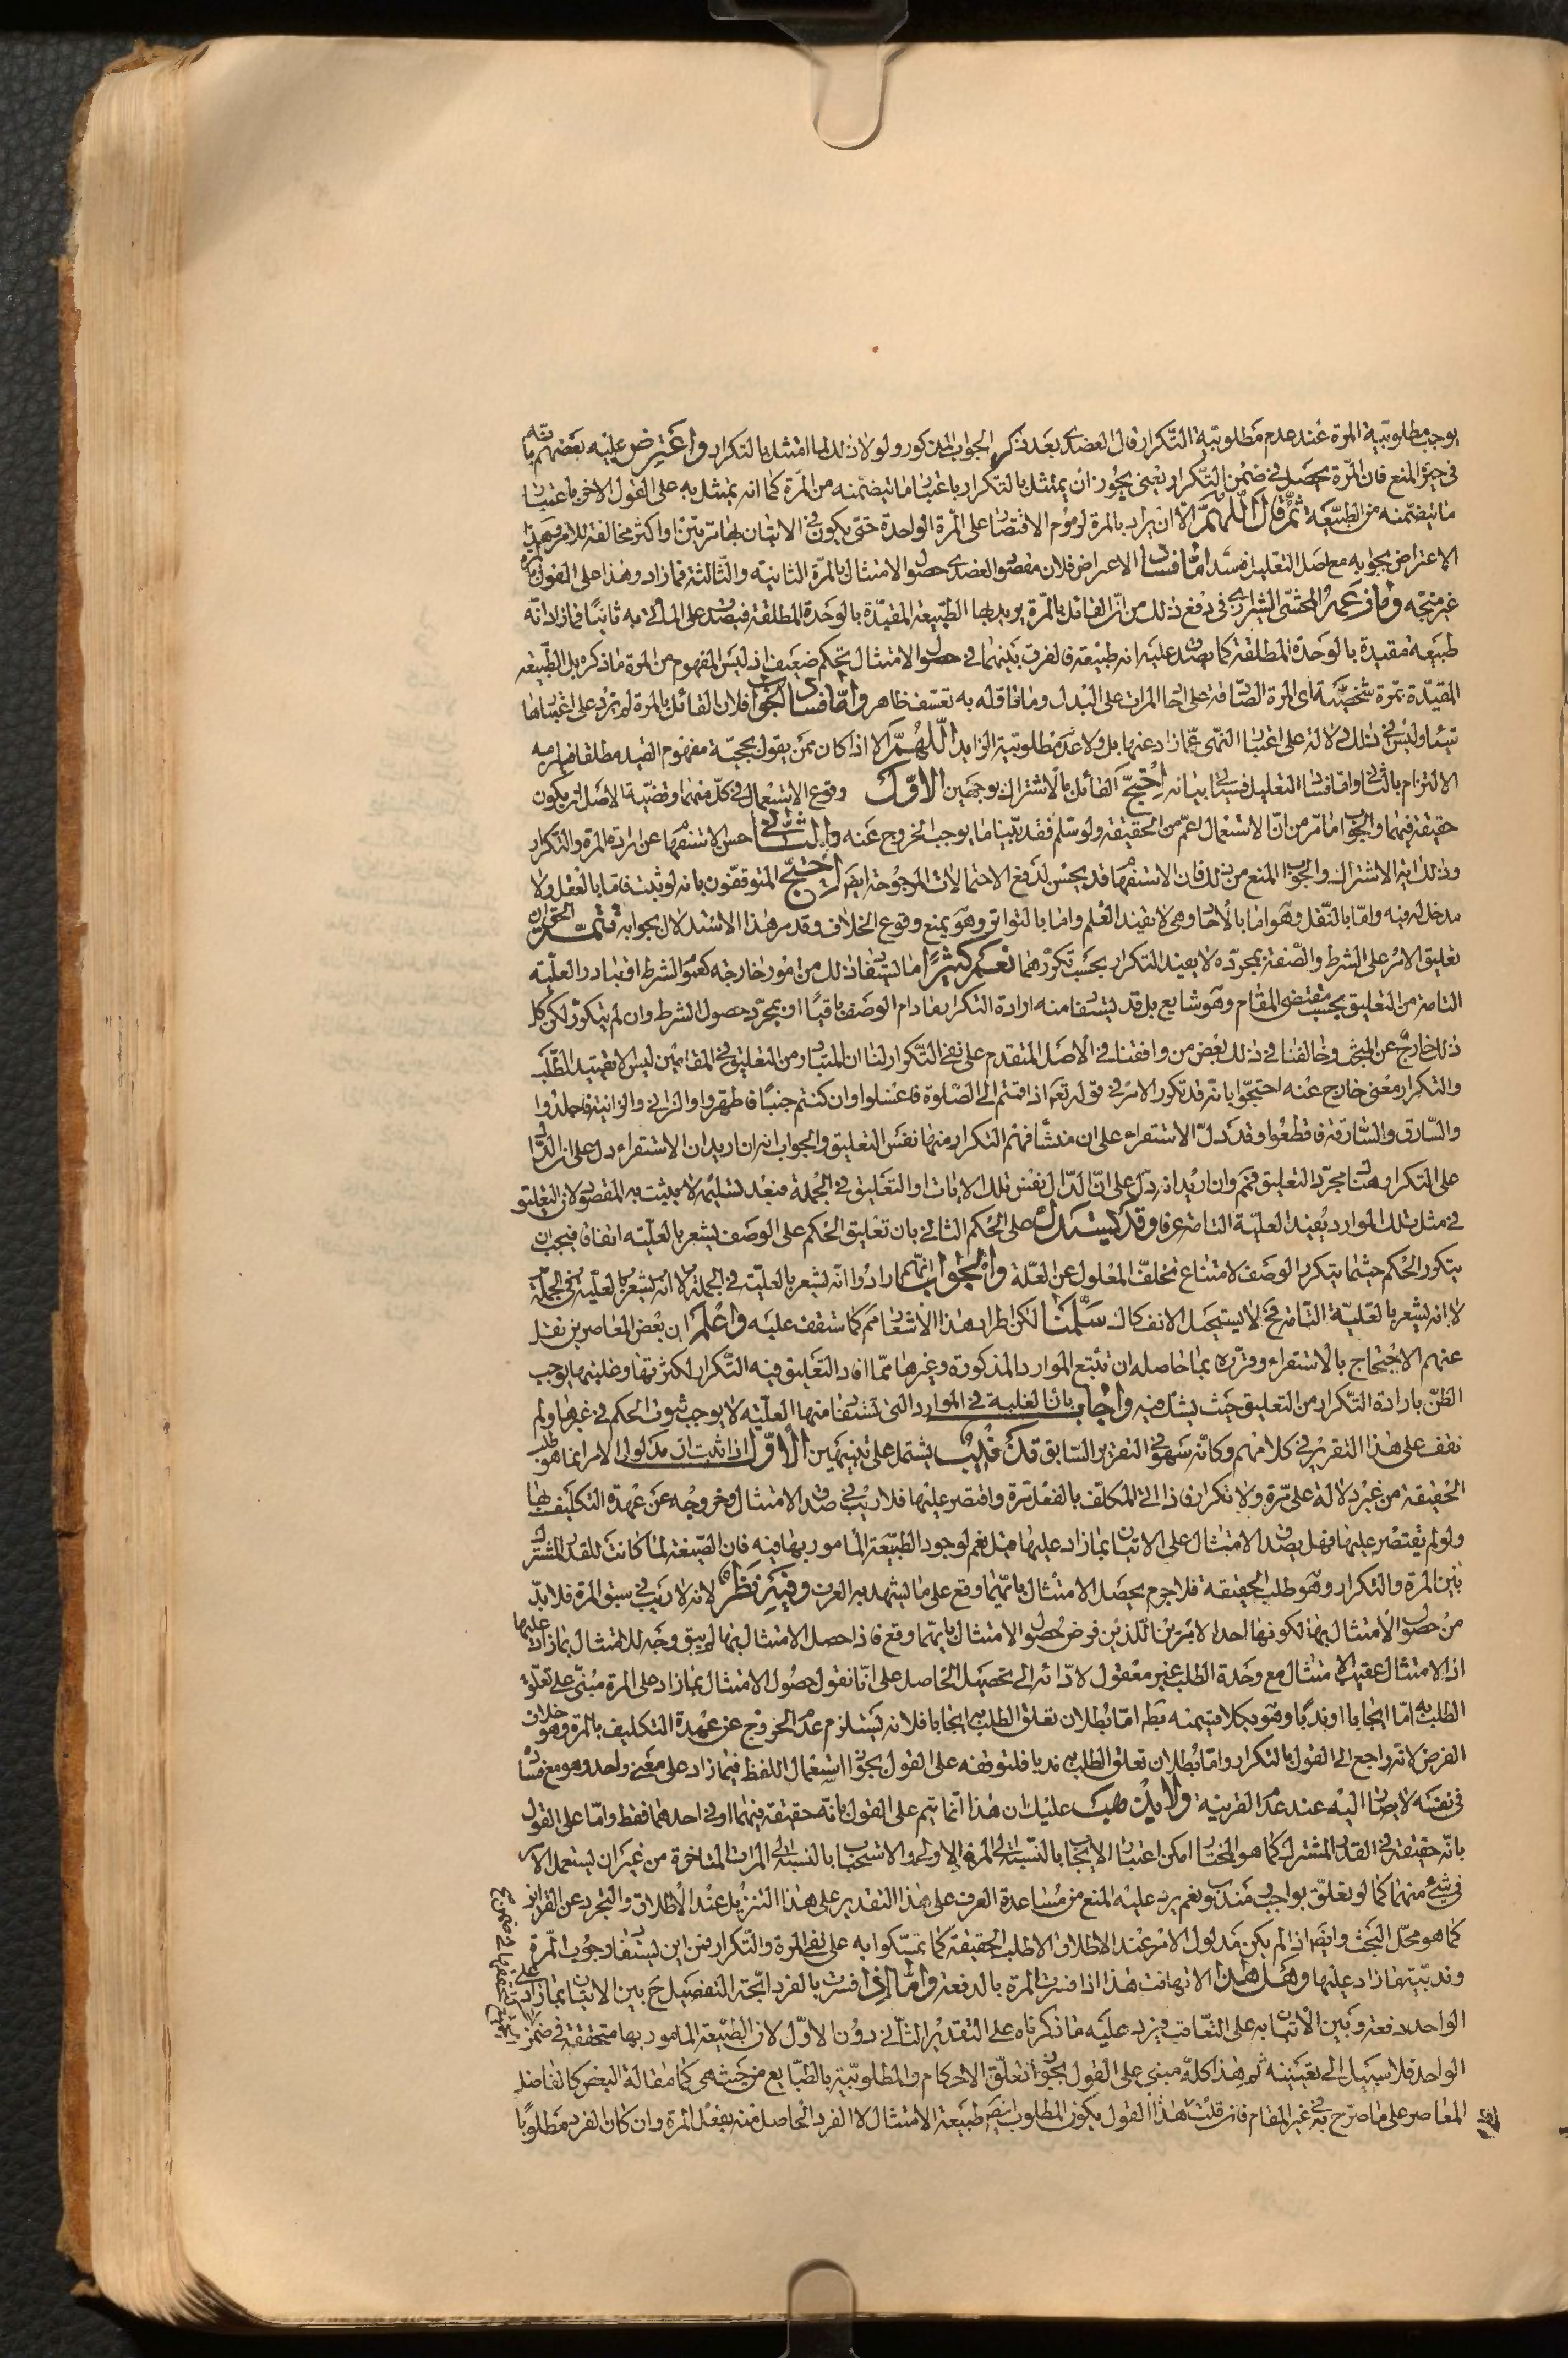 يوجب مطلوبية المرة عند عدم مطلوبية التكرار قال العضدى بعد ذكر الجواب المذكور ولولا ذلك لما امتثل بالتكرار واعترض عليه بعضهم بانه
فى حيز المنع فان المرة يحصل فى ضمن التكرار يعنى يجوز ان يمتثل بالتكرار باعتبار ما تيضمنه من المرة كما انه يمتثل به على القول الاخر باعتبار
ما تيضمنه من الطبيعة ثم قال اللهم الا ان يراد بالمرة لزوم الاقتصار على المرة الواحدة حتى يكون فى الاتيان بها مرتين او اكثر مخالفة للامر وهذا
الاعتراض بجوابه مع اصل التعليل فاسد اما فساد الاعراض فلان مقصود العضدى حصول الامتثال بالمرة الثانية والثالثة فما زاد وهذا على القول بالمرة
غير متجه وما زعمه المحشى الشيرازى فى دفع ذلك من ان القائل بالمرة يريد بها الطبيعة المقيدة بالوحدة المطلقة فيصدق على المأتى به ثانيا فما زاد انه
طبيعة مقيدة بالوحدة المطلقة كما يصدق عليه انه طبيعة فالفرق بينهما فى حصول الامتثال تحكم ضعيف اذ ليس المفهوم من المرة ما ذكره بل الطبيعة
المقيدة بمرة شخصية اى المرة الصادقة على احاد المرات على البدل وما قاقله به تعسف ظاهر واما فساد الجواب فلان القائل بالمرة لم يرد على اعتبارها
شيئا وليس فى ذلك دلالة على اعتبار النهى عما زاد عنها بل ولا عدم مطلوبية الزايد اللهم الا اذا كان ممن يقول بحجية مفهوم القيد مطلقا فيلزمه
الالتزام بالثانى واما فساد التعليل فسياتى بيانه احتج القائل بالاشتراك بوجهين الاول وقوع الاستعمال فى كل منهما وقضية الاصل ان يكون
حقيقة فيهما والجواب ما مر من ان الاستعمال اعم من الحقيقة ولو سلم فقد بينا ما يوجب الخروج عنه والثانى حسن الاستفهام عن ارادة المرة والتكرار
وذلك اية الاشتراك والجواب المنع من ذلك فان الاستفهام قد يحسن لدفع الاحتمالات المرجوحة ايضا احتج المتوقفون بانه لو ثبت فاما بالعقل ولا
مدخل له فيه واما بالنقل وهو اما بالاحاد وهى لا يفيد العلم واما بالتواتر وهو يمنع وقوع الخلاف وقد مر هذا الاستدلال بجوابه تتمة الحق ان
تعليق الامر على الشرط والصفة بمجرده لا يفيد التكرار بحسب تكررهما نعم كثيرا ما يستفاد ذلك من امور خارجة كعموم الشرط او تبادر العلية
التامة من التعليق بحسب مقتضى المقام وهو شايع بل قد يستفاد منه ارادة التكرار ما دام الوصف باقيا او بمجرد حصول الشرط وان لم يتكرر لكن كل
ذلك خارج عن المبحث وخالفنا فى ذلك بعض من وافقنا فى الاصل المتقدم على نفى التكرار لنا ان المتبادر من التعليق فى المقامين ليس الا تقييد الطلب
والتكرار معنى خارج عنه احتجوا بانه قد تكرر الامر فى قوله تعالى اذا قمتم الى الصلوة فاغسلوا وان كنتم جنبا فاطهروا والزانى والزانية فاجلدوا
والسارق والسارقة فاقطعوا وقد دل الاستقراء على ان منشأ فهم التكرار منها نفس التعليق والجواب انه ان اريد ان الاستقراء دل على ان الدال
على التكرار هنا مجرد التعليق فمم وان اريد انه دل على ان الدال نفس تلك الايات او التعليق فى الجملة فبعد تسليمه لا يثبت به المقصود لان التعليق
فى مثل تلك الموارد يفيد العلية التامة عرفا وقد يستدل على الحكم الثانى بان تعليق الحكم على الوصف يشعر بالعلية اتفاقا فيجب ان
يتكرر الحكم حيثما يتكرر الوصف لامتناع تخلف المعلول عن العلة والجواب انهم ارادوا انه يشعر بالعلية فى الجملة لا انه يشعر بالعلية فى الجملة
لا انه يشعر بالعلية التامة فح لا يستحيل الانفكاك سلمنا لكن اطراد هذا الاشعار مم كما ستقف عليه واعلم ان بعض المعاصرين نقل
عنهم الاحتجاج بالاستقراء وقرره بما حاصله ان تتبع الموارد المذكورة وغيرها مما افاد التعليق فيه التكرار لكثرتها وغلبتها يوجب
الظن بارادة التكرار من التعليق حيث يشك فيه واجاب بان الغلبة فى الموارد التى تستفاد منها العلية لا يوجب ثبوت الحكم فى غيرها ولم
نقف على هذا التقرير فى كلامهم وكأنه سهو فى التقرير السابق قدنيب يشتمل على تنبيهين الاول اذا ثبت ان مدلول الامر انما هو طلب
الحقيقة من غير دلالة على مرة ولا تكرار فاذا اتى المكلف بالفعل مرة واقتصر عليها فلا ريب فى صدق الامتثال وخروجه عن عهدة التكليف بها
ولو لم يقتصر عليها فهل يصدق الامتثال على الاتيان بما زاد عليها قيل نعم لوجود الطبيعة المامور بها فيه فان الصيغة لما كانت للقدر المشترك
بين المرة والتكرار وهو طلب الحقيقة فلا جرم يحصل الامتثال بايهما وقع على ما يشهد به العرف وفيه نظر لانه لا ريب فى سبق المرة فلا بد
من حصول الامتثال بها لكونها احد الامرين اللذين فرض حصول الامتثال بايهما وقع فاذا حصل الامتثال بها لم يبق وجه للامتثال بما زاد عليها
اذ الامتثال عقيب الامتثال مع وحدة الطلب غير معقول لادائه الى تحصيل الحاصل على انا نقول حصول الامتثال بما زاد على المرة مبنى على تعلق
الطلب به اما ايجابا او ندبا وهو بكلا قسميه بط اما بطلان تعلق الطلب به ايجابا فلانه يستلزم عدم الخروج عن عهدة التكليف بالمرة وهو خلاف
الفرض لانه راجع الى القول بالتكرار واما بطلان تعلق الطلب به ندبا فلتوقفه على القول بجواز استعمال اللفظ فيما زاد على معنى واحد وهو مع فساده
فى نفسه لا يصار اليه عند عدم القرينة ولا يذهب عليك ان هذا انما يتم على القول بانه حقيقة فيهما او فى احدهما فقط واما على القول
بانه حقيقة فى القدر المشترك كما هو المختار امكن اعتبار الايجاب بالنسبة الى المرة الاولى والاستحباب بالنسبة الى المرات المتاخرة من غير ان يستعمل الامر
فى شئ منهما كما لو تعلق بواجب ومندوب ونعم يرد عليه المنع من مساعدة العرف على هذا التقدير على هذا التنزيل عند الاطلاق والتجرد عن القرائن
كما هو محل البحث وايضا اذا لم يكن مدلول الامر عند الاطلاق الا طلب الحقيقة كما تمسكوا به على نفى المرة والتكرار فمن اين يستفاد وجوب المرة
وندبية ما زاد عليها وهل هذا الا تهافت هذا اذا فسرت المرة بالدفعة واما اذا فسرت بالفرد اتجه التفصيل ح بين الاتيان بما زاد على
الواحد دفعة وبين الاتيان به على التعاقب فيرد عليه ما ذكرناه على التقدير الثانى دون الاول لان الطبيعة المامور بها متحققة فى ضمن
الواحد فلا سبيل الى تعيينه ثم هذا كله مبنى على القول بجواز تعلق الاحكام والمطلوبية بالطبايع من حيث هى كما مقالة البعض كالفاضل
المعاصر على ما صرح به فى غير المقام فان قلت هذا القول يكون المطلوب ايضا طبيعة الامتثال لا الفرد الحاصل منه بفعل المرة وان كان الفرد مطلوبا